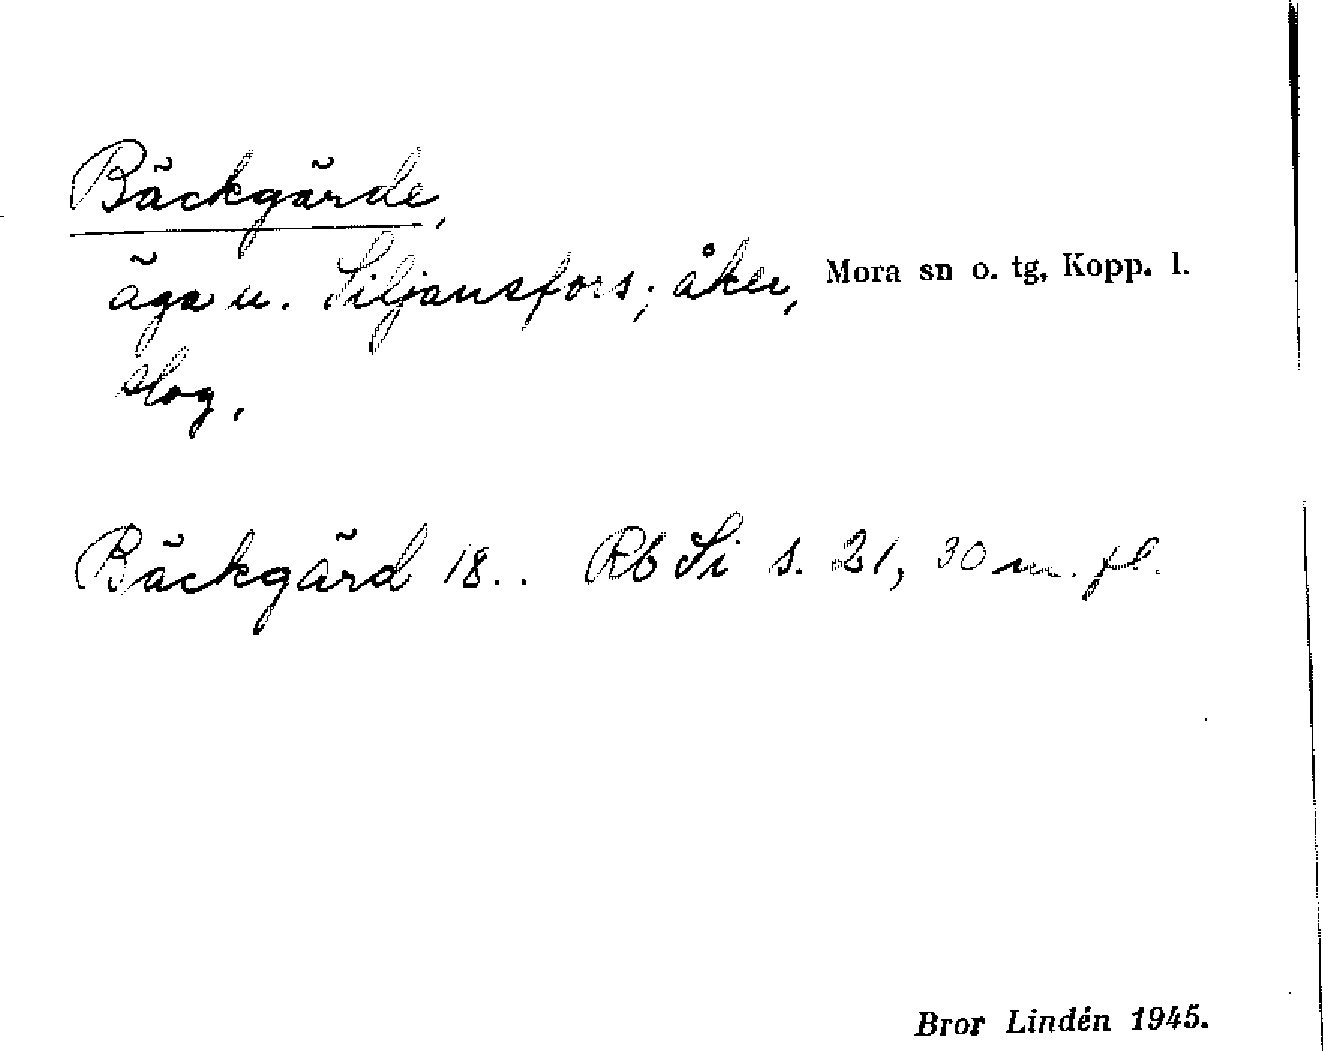 Bäckgärde,
äga u. Siljansfors; åker, Mora sn o. tg, Kopp. l.
slog.
Bäckgärd 18.. Rb Si s. 21, 30 m. fl.
Bror Lindén 1945.